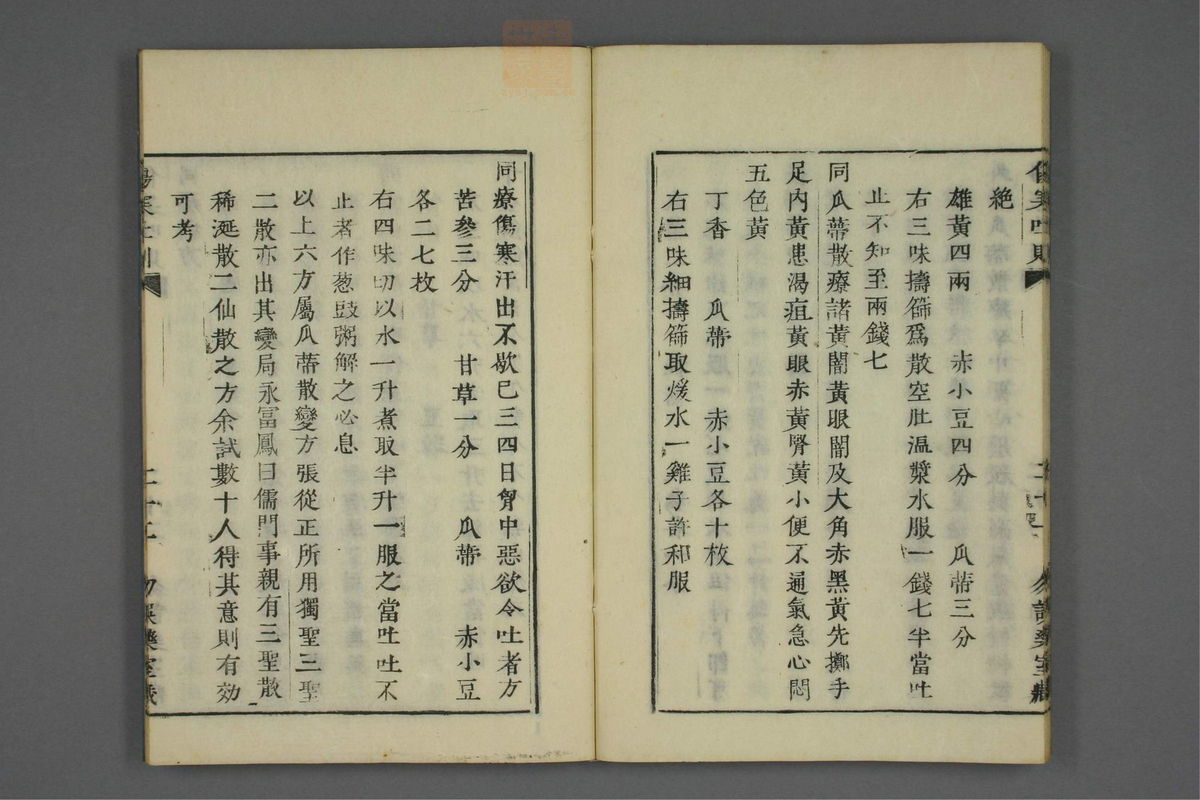 絶
雄黃四兩　赤小豆四分　瓜蔕三分
右三味擣篩爲散空肚温漿水服一錢七半當吐
止不知至兩錢七
同瓜蔕散療諸黃闇黃眼闇及大角赤黑黃先擲手
足内黃患渴疽黃眼赤黃腎黃小便不通氣急心悶
五色黃
丁香　瓜蔕　赤小豆各十枚
右三味細擣篩取煖水一雞子許和服
同療傷寒汗出不歇已三四日胷中惡欲令吐者方
苦參三分　甘草一分　瓜蔕　赤小豆
各二七枚
右四味切以水一升煮取半升一服之當吐吐不
止者作葱豉粥解之必息
以上六方屬瓜蔕散變方張從正所用獨聖三聖
二散亦出其變局永富鳳曰儒門事親有三聖散
稀涎散二仙散之方余試數十人得其意則有効
可考